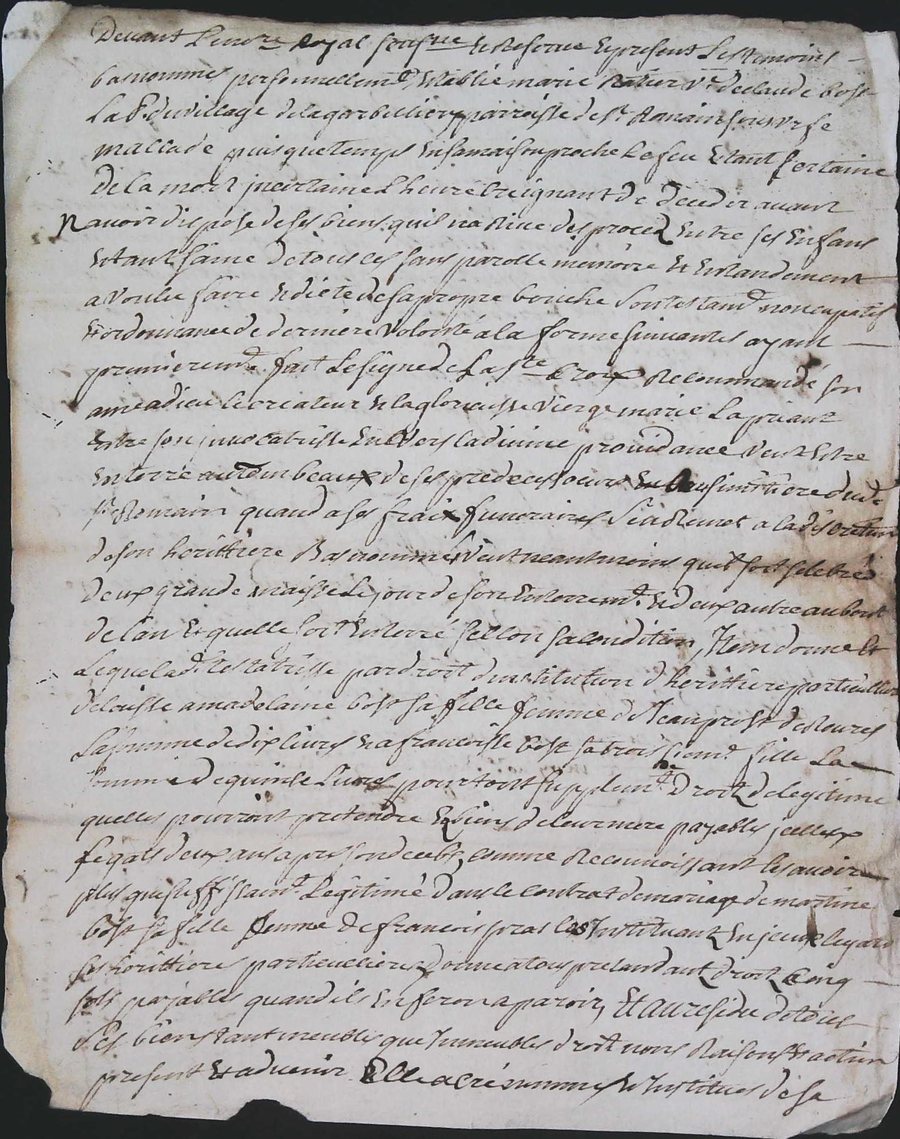 Devant Lenore Royal soubsne et Reserve et present Les temoins
bas nommes personnellemt Etablie marie Ratier ve de claude bost
La P. du village de la garbelliere parroisse de st Romain sous urfe
mallade puis que temps en sa maison proche Le feu Etant sertaine
De la mort incertaine L heure Creignant de deceder avant
Navoir dispose de ses biens quil narrive des proced Entre ses Enfans
Etant saine de tous ces sans parolle memoire Et Entandement
a voulu faire Et dicte de sa propre bouche son testamt noncupatif
Et ordonnance de derniere volonté a la forme suivantes ayant
premieremt fait Le signe de La ste Croix Recommandé son
ame a dieu le createur Et la glorieuse vierge marie La priant
Entre son invocatrisse Envers la divine providance veut Estre
Enterré au tombeaux de ses predecesseurs au simittiere dudt
st Romain quand a ses fraix funeraires sen Remet a la discretion
de son herittiere Bas nommé veut neantmoins quil soit selebré
Deux grande maisse Le jour de son Enterremt Et deux autre au bout
de l'an Et quelle soit Enterré sellon sa condition Item donne Et
Legue lad testatrisse par droit d'institution d herittiere particulliere
a madelaine bost sa fille femme de Jean prost
La somme de dix Livres Et a francoisse bost sa troisiemt fille La
somme De quinze Livres pour tout supplemt de Droit de legitime
quelles pouront pretendre Es biens de leur mere payables jcelles
legats deux ans apres son deceds, comme Reconnoissant les avoir
plus que suffisamt Legitimé dans le contrat de mariage de martine
bost sa fille femme de francois pras Les Instituant En jceux legats
ses herittieres particullieres Donne a tous pretandant Droit Cinq
sols payables quand ils En feron aparoir, Et au residu de tous
ses biens tant meubles que Inmeubles Droit noms Raisons Et action
present Et advenir Elle a cré nommé Et Institué de sa